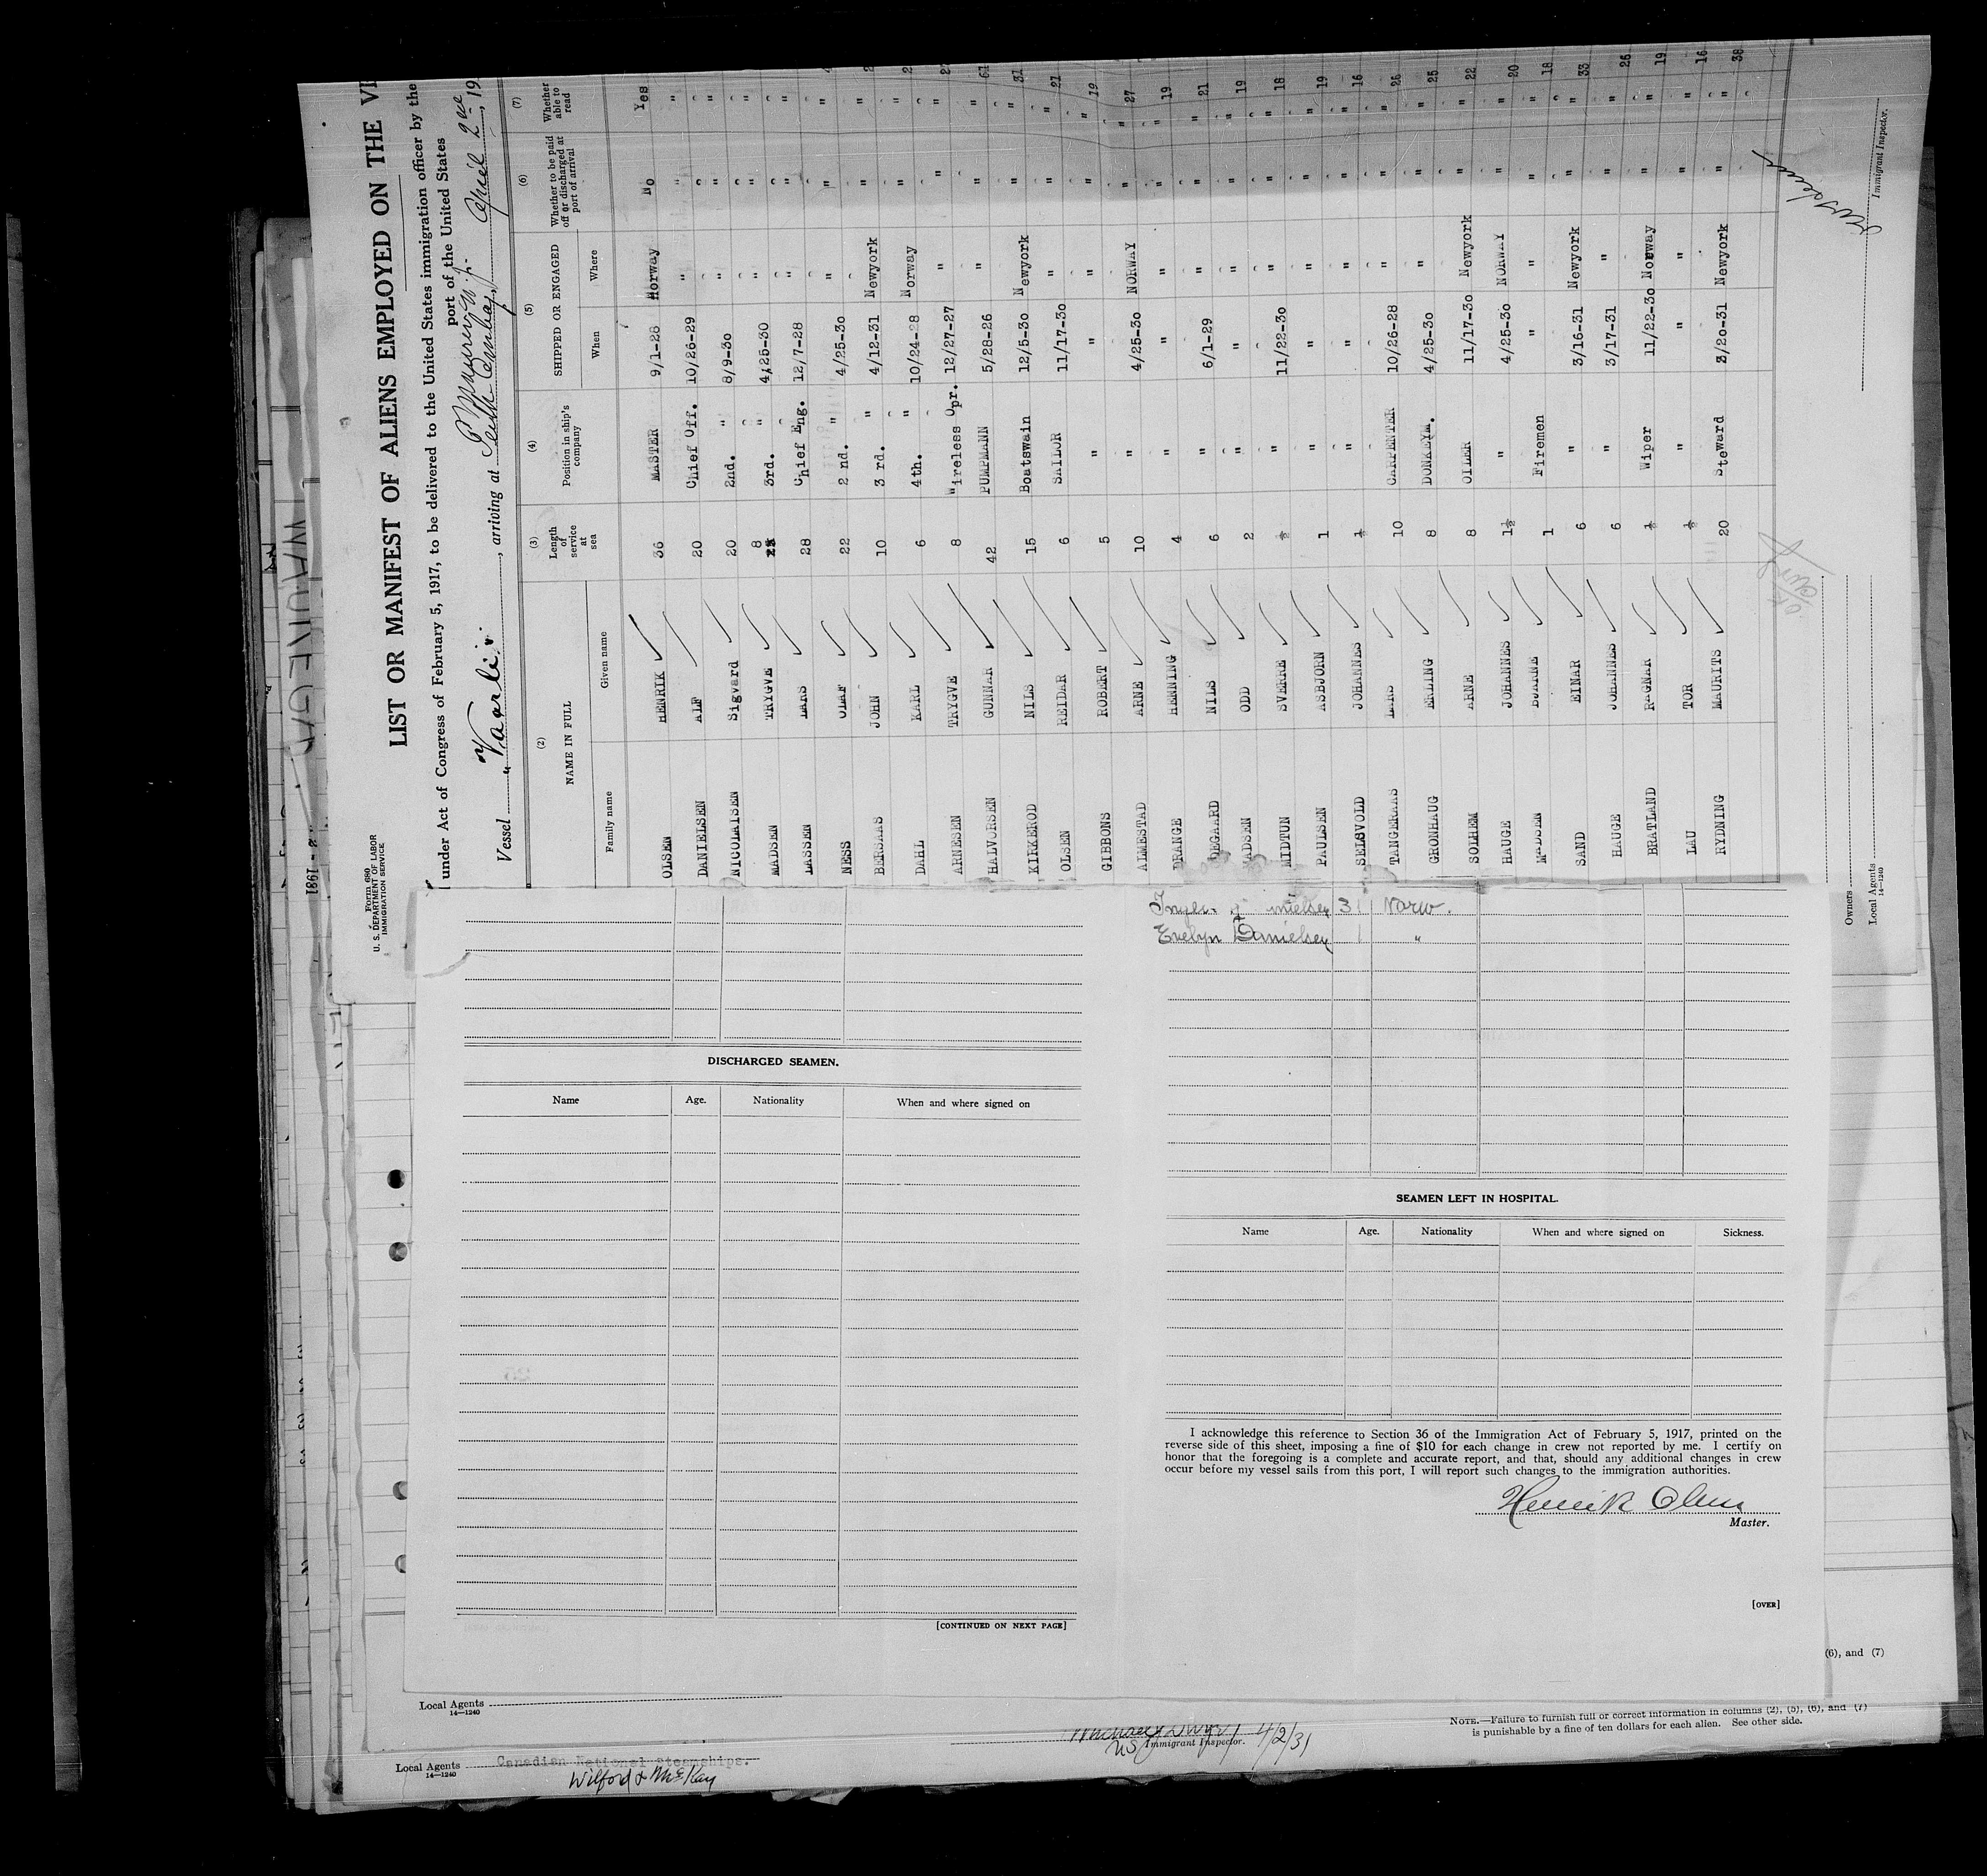 Form 680
U. S. DEPARTMENT OF LABOR
IMMIGRATION SERVICE
LIST OR MANIFEST OF ALIENS EMPLOYED ON THE
under Act of Congress of February 5, 1917, to be delivered to the United States immigration officer by the
port of the United States
Vessel "Vaarli", arriving at Perth Amboy, N. J. April 2nd, 19
(2) (3) (4) (5) (6) (7)
NAME IN FULL
Family name Given name
Length of service at sea
Position in ship's company
SHIPPED OR ENGAGED
When Where
Whether to be paid off or discharged at port of arrival
Whether able to read
OLSEN HENRIK 36 MASTER 9/1-28 Norway No Yes
DANIELSEN ALF 20 Chief Off. 10/26-29 " " "
NICOLAISEN Sigvard 20 2nd. " 8/9-30 " " "
MADSEN TRYGVE 8 3rd. " 4/25-30 " " "
LASSEN LARS 28 Chief Eng. 12/7-28 " " "
NESS OLAF 22 2 nd. " 4/25-30 " " "
BERSAAS JOHN 10 3 rd. " 4/12-31 Newyork " "
DAHL KARL 6 4th. " 10/24-28 Norway " "
ARNESEN TRYGVE 8 Wireless Opr. 12/27-27 " " "
HALVORSEN GUNNAR 42 PUMPMANN 5/28-26 " " " 61
KIRKEROD NILS 15 Boatswain 12/5-30 Newyork " " 31
OLSEN REIDAR 6 SAILOR 11/17-30 " " " 21
GIBBONS ROBERT 5 " " " " " 19
ALMESTAD ARNE 10 " 4/25-30 NORWAY " " 27
DRANGE HENNING 4 " " " " " 19
ODEGAARD NILS 6 " 6/1-29 " " " 21
MADSEN ODD 2 " " " " " 19
MIDTUN SVERRE ½ " 11/22-30 " " " 18
PAULSEN ASBJORN 1 " " " " " 19
SELSVOLD JOHANNES ½ " " " " " 16
TANGERAAS LARS 10 CARPENTER 10/26-28 " " " 26
GRONHAUG ERLING 8 DONKEYM. 4/25-30 " " " 25
SOLHEM ARNE 8 OILER 11/17-30 Newyork " " 22
HAUGE JOHANNES 1½ " 4/25-30 NORWAY " " 20
MADSEN BJARNE 1 Firemen " " " " 18
SAND EINAR 6 " 3/16-31 Newyork " " 33
HAUGE JOHANNES 6 " 3/17-31 " " " 26
BRATLAND RAGNAR ½ Wiper 11/22-30 Norway " " 19
LAU TOR ½ " " " " " 16
RYDNING MAURITS 20 Steward 3/20-31 Newyork " " 38
Immigrant Inspector.
Owners
Local Agents
14—1240
31 Norw.
Evelyn Danielsen 1 "
DISCHARGED SEAMEN.
Name Age. Nationality When and where signed on
[CONTINUED ON NEXT PAGE]
SEAMEN LEFT IN HOSPITAL.
Name Age. Nationality When and where signed on Sickness.
I acknowledge this reference to Section 36 of the Immigration Act of February 5, 1917, printed on the
reverse side of this sheet, imposing a fine of $10 for each change in crew not reported by me. I certify on
honor that the foregoing is a complete and accurate report, and that, should any additional changes in crew
occur before my vessel sails from this port, I will report such changes to the immigration authorities.
Henrik Olsen
Master.
[OVER]
(6), and (7)
Local Agents
14—1240
NOTE.—Failure to furnish full or correct information in columns (2), (5), (6), and (7)
is punishable by a fine of ten dollars for each alien. See other side.
4/2/31
US Immigrant Inspector.
Local Agents Canadian National Steamships.
14—1240
Wilford & McKay